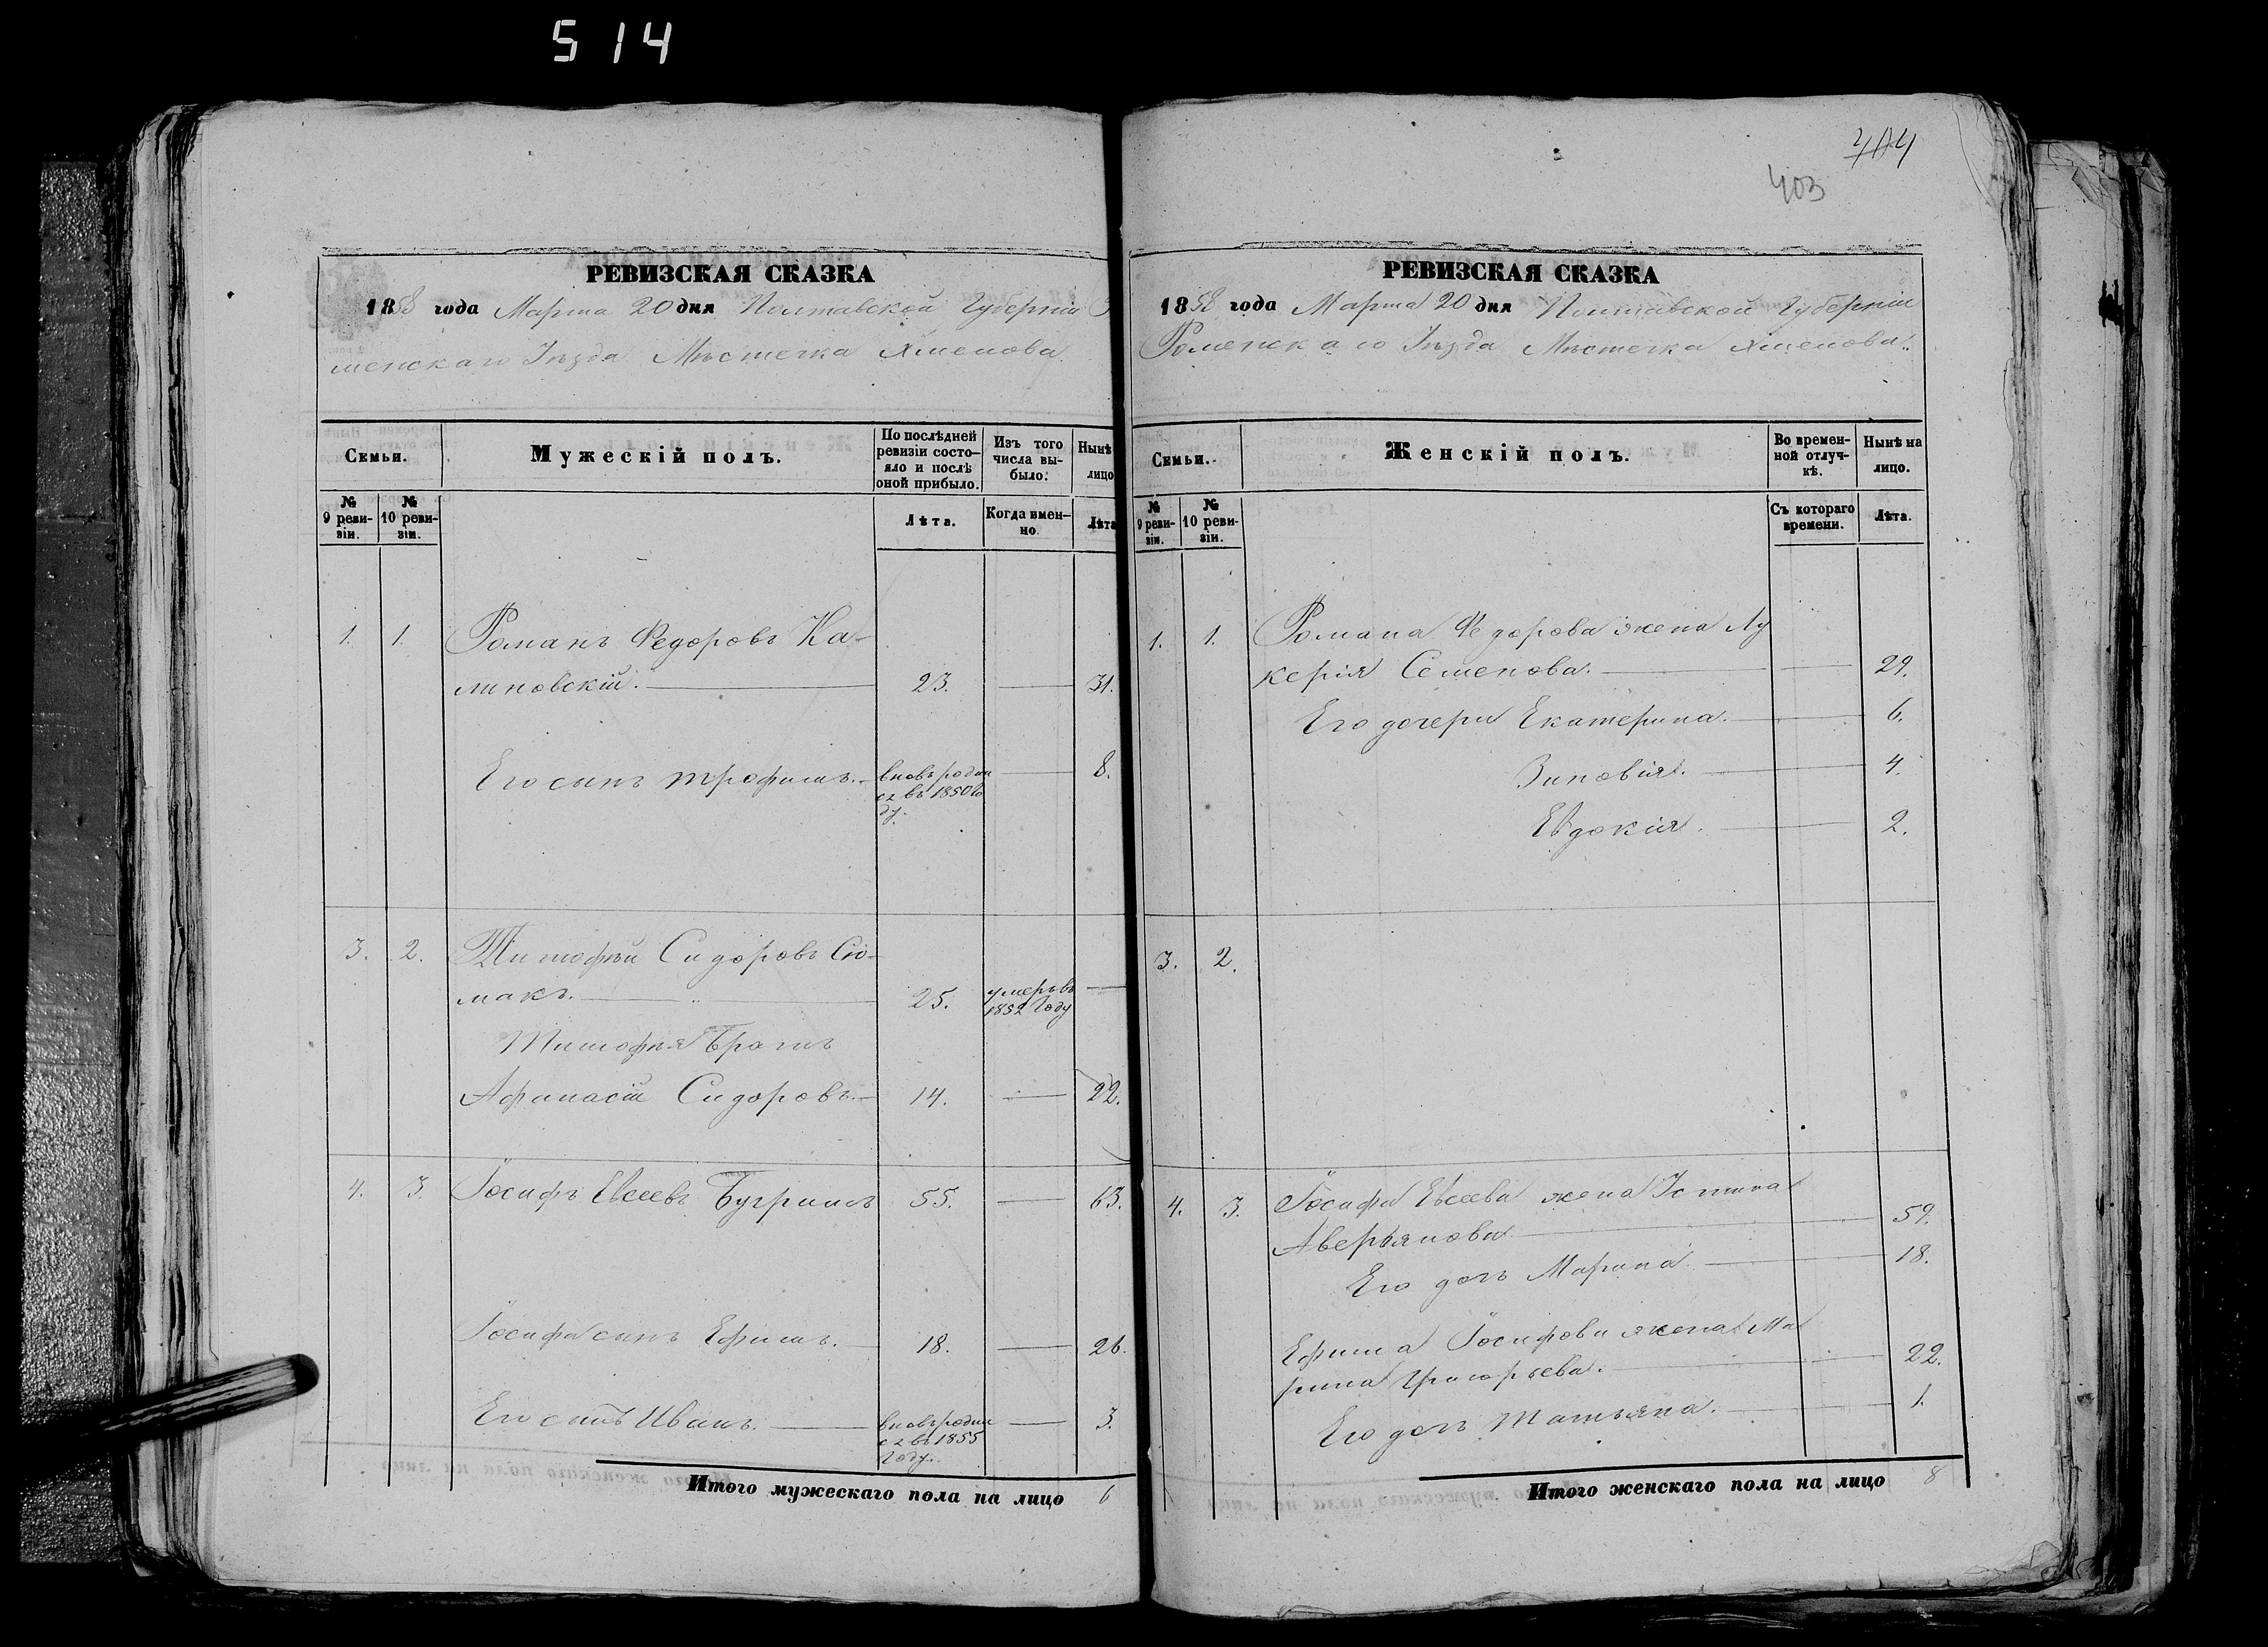 514
РЕВИЗСКАЯ СКАЗКА
1858 года Марта 20 дня Полтавской Губерніи
менскаго Уѣзда Мѣстечка Хмелова
Семьи.
Мужескій полъ.
По послѣдней
ревизіи состо-
яло и послѣ
оной прибыло.
Изъ того
числа вы-
было.
Нынѣ
лицо
№
9 реви-
зіи.
№
10 реви-
зіи.
Лѣта.
Когда имен-
но.
Лѣта
1. 1. Романъ Федоровъ Ка-
линовскій. 23. 31.
Его сынъ Трофимъ. вновь родил
ся въ 1850 го
ду. 8.
3. 2. Тимофѣй Сидоровъ Сю-
макъ. 25. умеръ въ
1852 году
Тимофея Братъ
Афанасій Сидоровъ 14. 22.
4. 3. Іосифъ Евсеевъ Бугримъ 55. 63.
Іосифа сынъ Ефимъ. 18. 26.
Его сынъ Иванъ. вновь родил
ся въ 1855
году. 3.
Итого мужескаго пола на лицо 6
404
403
РЕВИЗСКАЯ СКАЗКА
1858 года Марта 20 дня Полтавской Губерніи
Роменскаго Уѣзда Мѣстечка Хмелова
Семьи.
Женскій полъ.
Во времен-
ной отлуч-
кѣ.
Нынѣ на
лицо.
№
9 реви-
зіи.
№
10 реви-
зіи.
Съ котораго
времени.
Лѣта.
1. 1. Романа Федорова жена Лу
керія Семенова. 29.
Его дочери Екатерина. 6.
Зиновія. 4.
Евдокія. 2.
3. 2.
4. 3. Іосифа Евсеева жена Устина
Аверьянова 59.
Его дочь Марина 18.
Ефима Іосифова жена Ма
рина Григорьева. 22.
Его дочь Татьяна. 1.
Итого женскаго пола на лицо 8